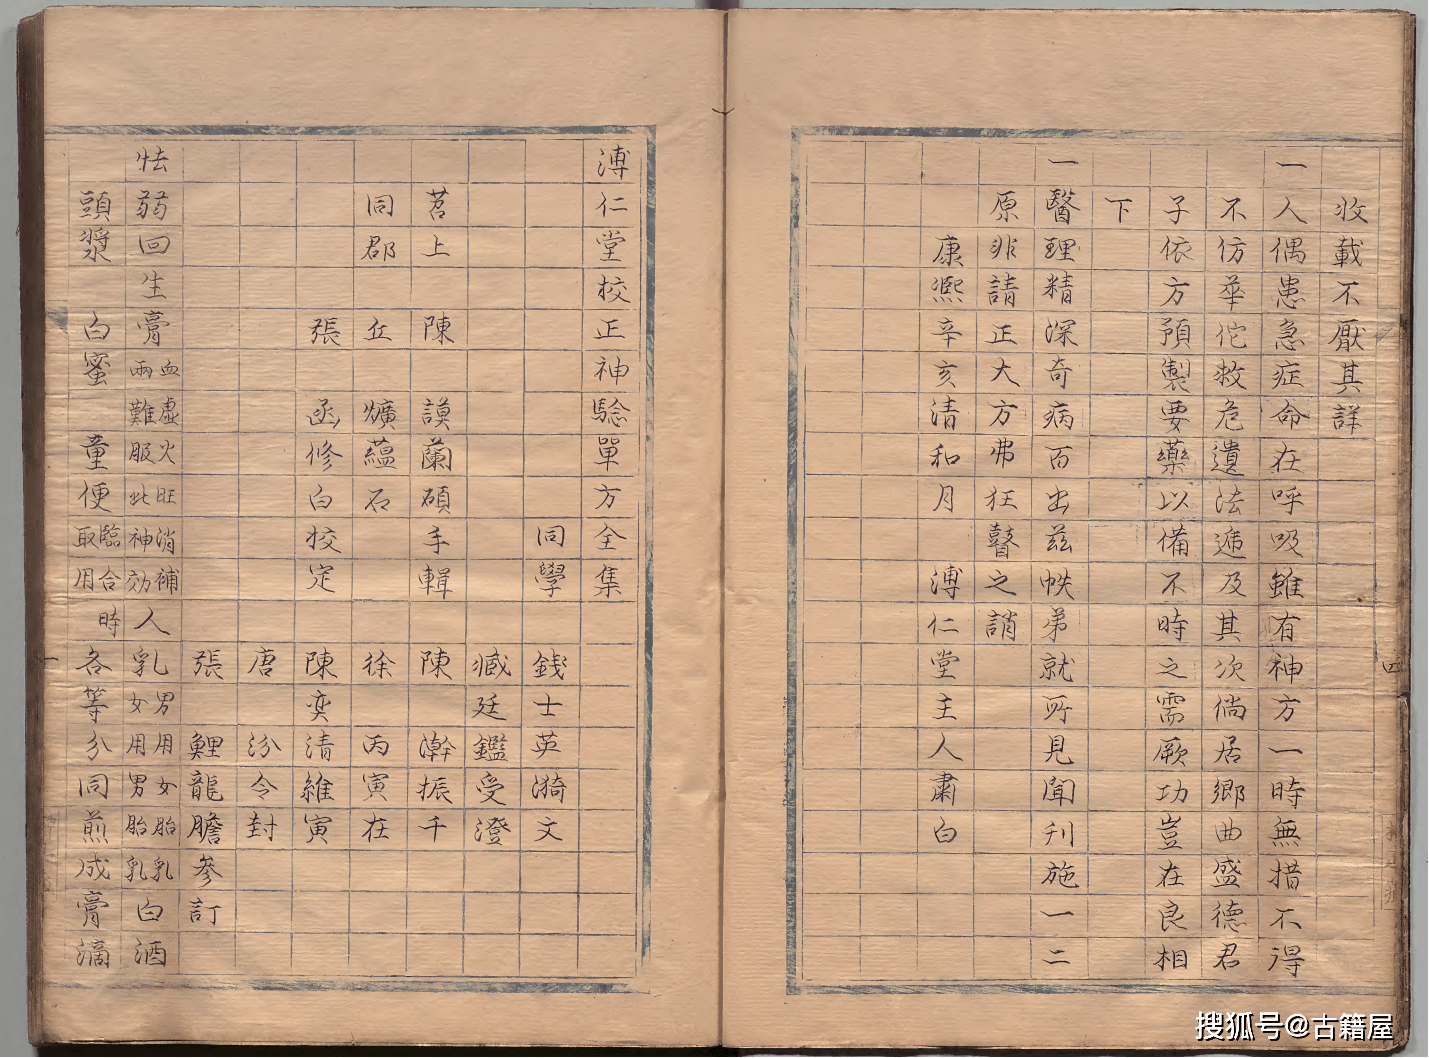 收載不厭其詳
一人偶患急症命在呼吸雖有神方一時無措不得
不仿華佗救危遺法遞及其次倘居鄉曲盛德君
子依方預製要藥以備不時之需厥功豈在良相
下
一醫理精深奇病百出茲帙弟就所見聞刋施一二
原非請正大方弗狂瞽之誚
康熙辛亥清和月 溥仁堂主人肅白
四
溥仁堂校正神驗單方全集
同學 錢士英漪文
臧廷鑑受澄
苕上 陳謨蘭碩手輯 陳瀚振千
同郡 丘爌蘊石 徐丙寅在
張函修白校定 陳奕清維寅
唐汾令封
張鯉龍膽參訂
怯弱回生膏 血虛火旺消補兩難服此神効 人乳 男用女胎乳女用男胎乳 白酒
頭漿 白蜜 童便 臨合時取用 各等分同煎成膏滴
一
搜狐号@古籍屋